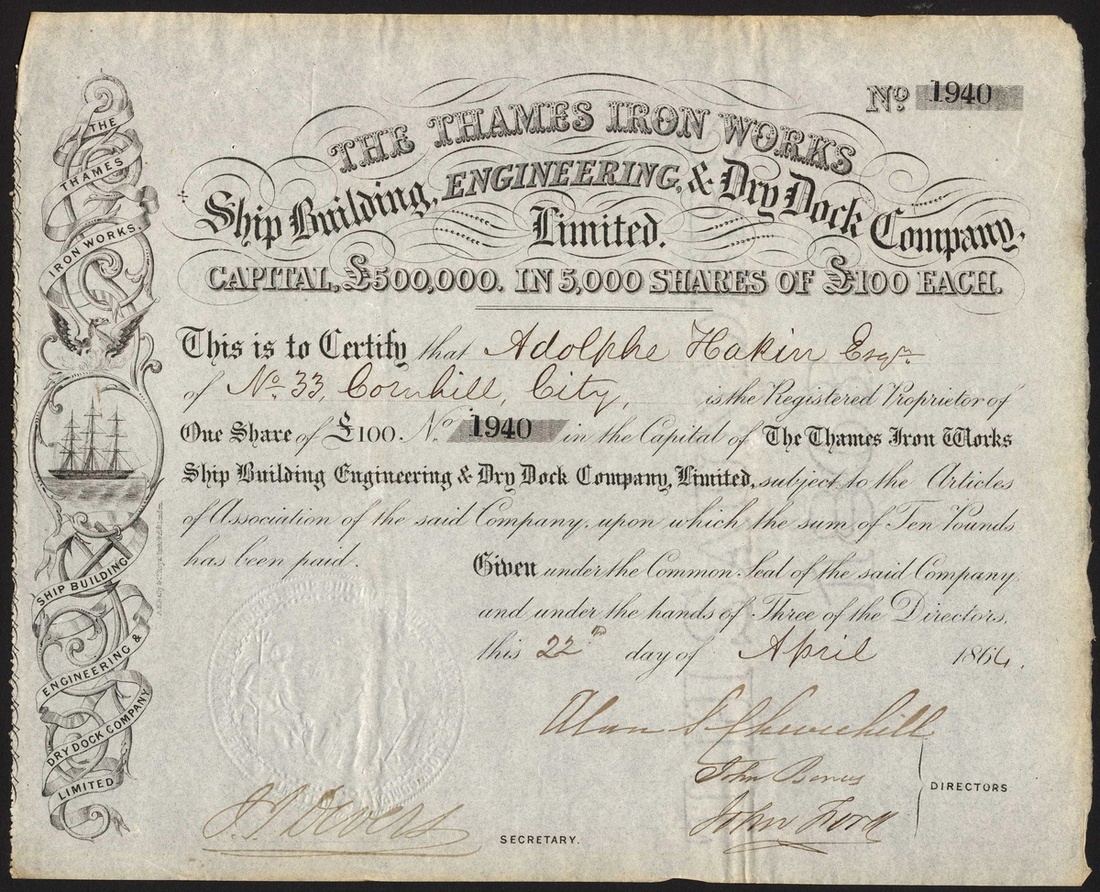 No. 1940
THE THAMES IRON WORKS
Ship Building, ENGINEERING, & Dry Dock Company,
Limited.
CAPITAL, £500,000. IN 5,000 SHARES OF £100 EACH.
This is to Certify that Adolphe Hakin Esqre
of No. 33, Cornhill, City, is the Registered Proprietor of
One Share of £100. No. 1940 in the Capital of The Thames Iron Works
Ship Building Engineering & Dry Dock Company, Limited, subject to the Articles
of Association of the said Company, upon which the sum of Ten Pounds
has been paid.
Given under the Common Seal of the said Company
and under the hands of Three of the Directors,
this 22nd day of April 1864.
Churchill
John
John Ford
DIRECTORS
SECRETARY.
THE
THAMES
IRON WORKS.
SHIP BUILDING
ENGINEERING &
DRY DOCK COMPANY
LIMITED